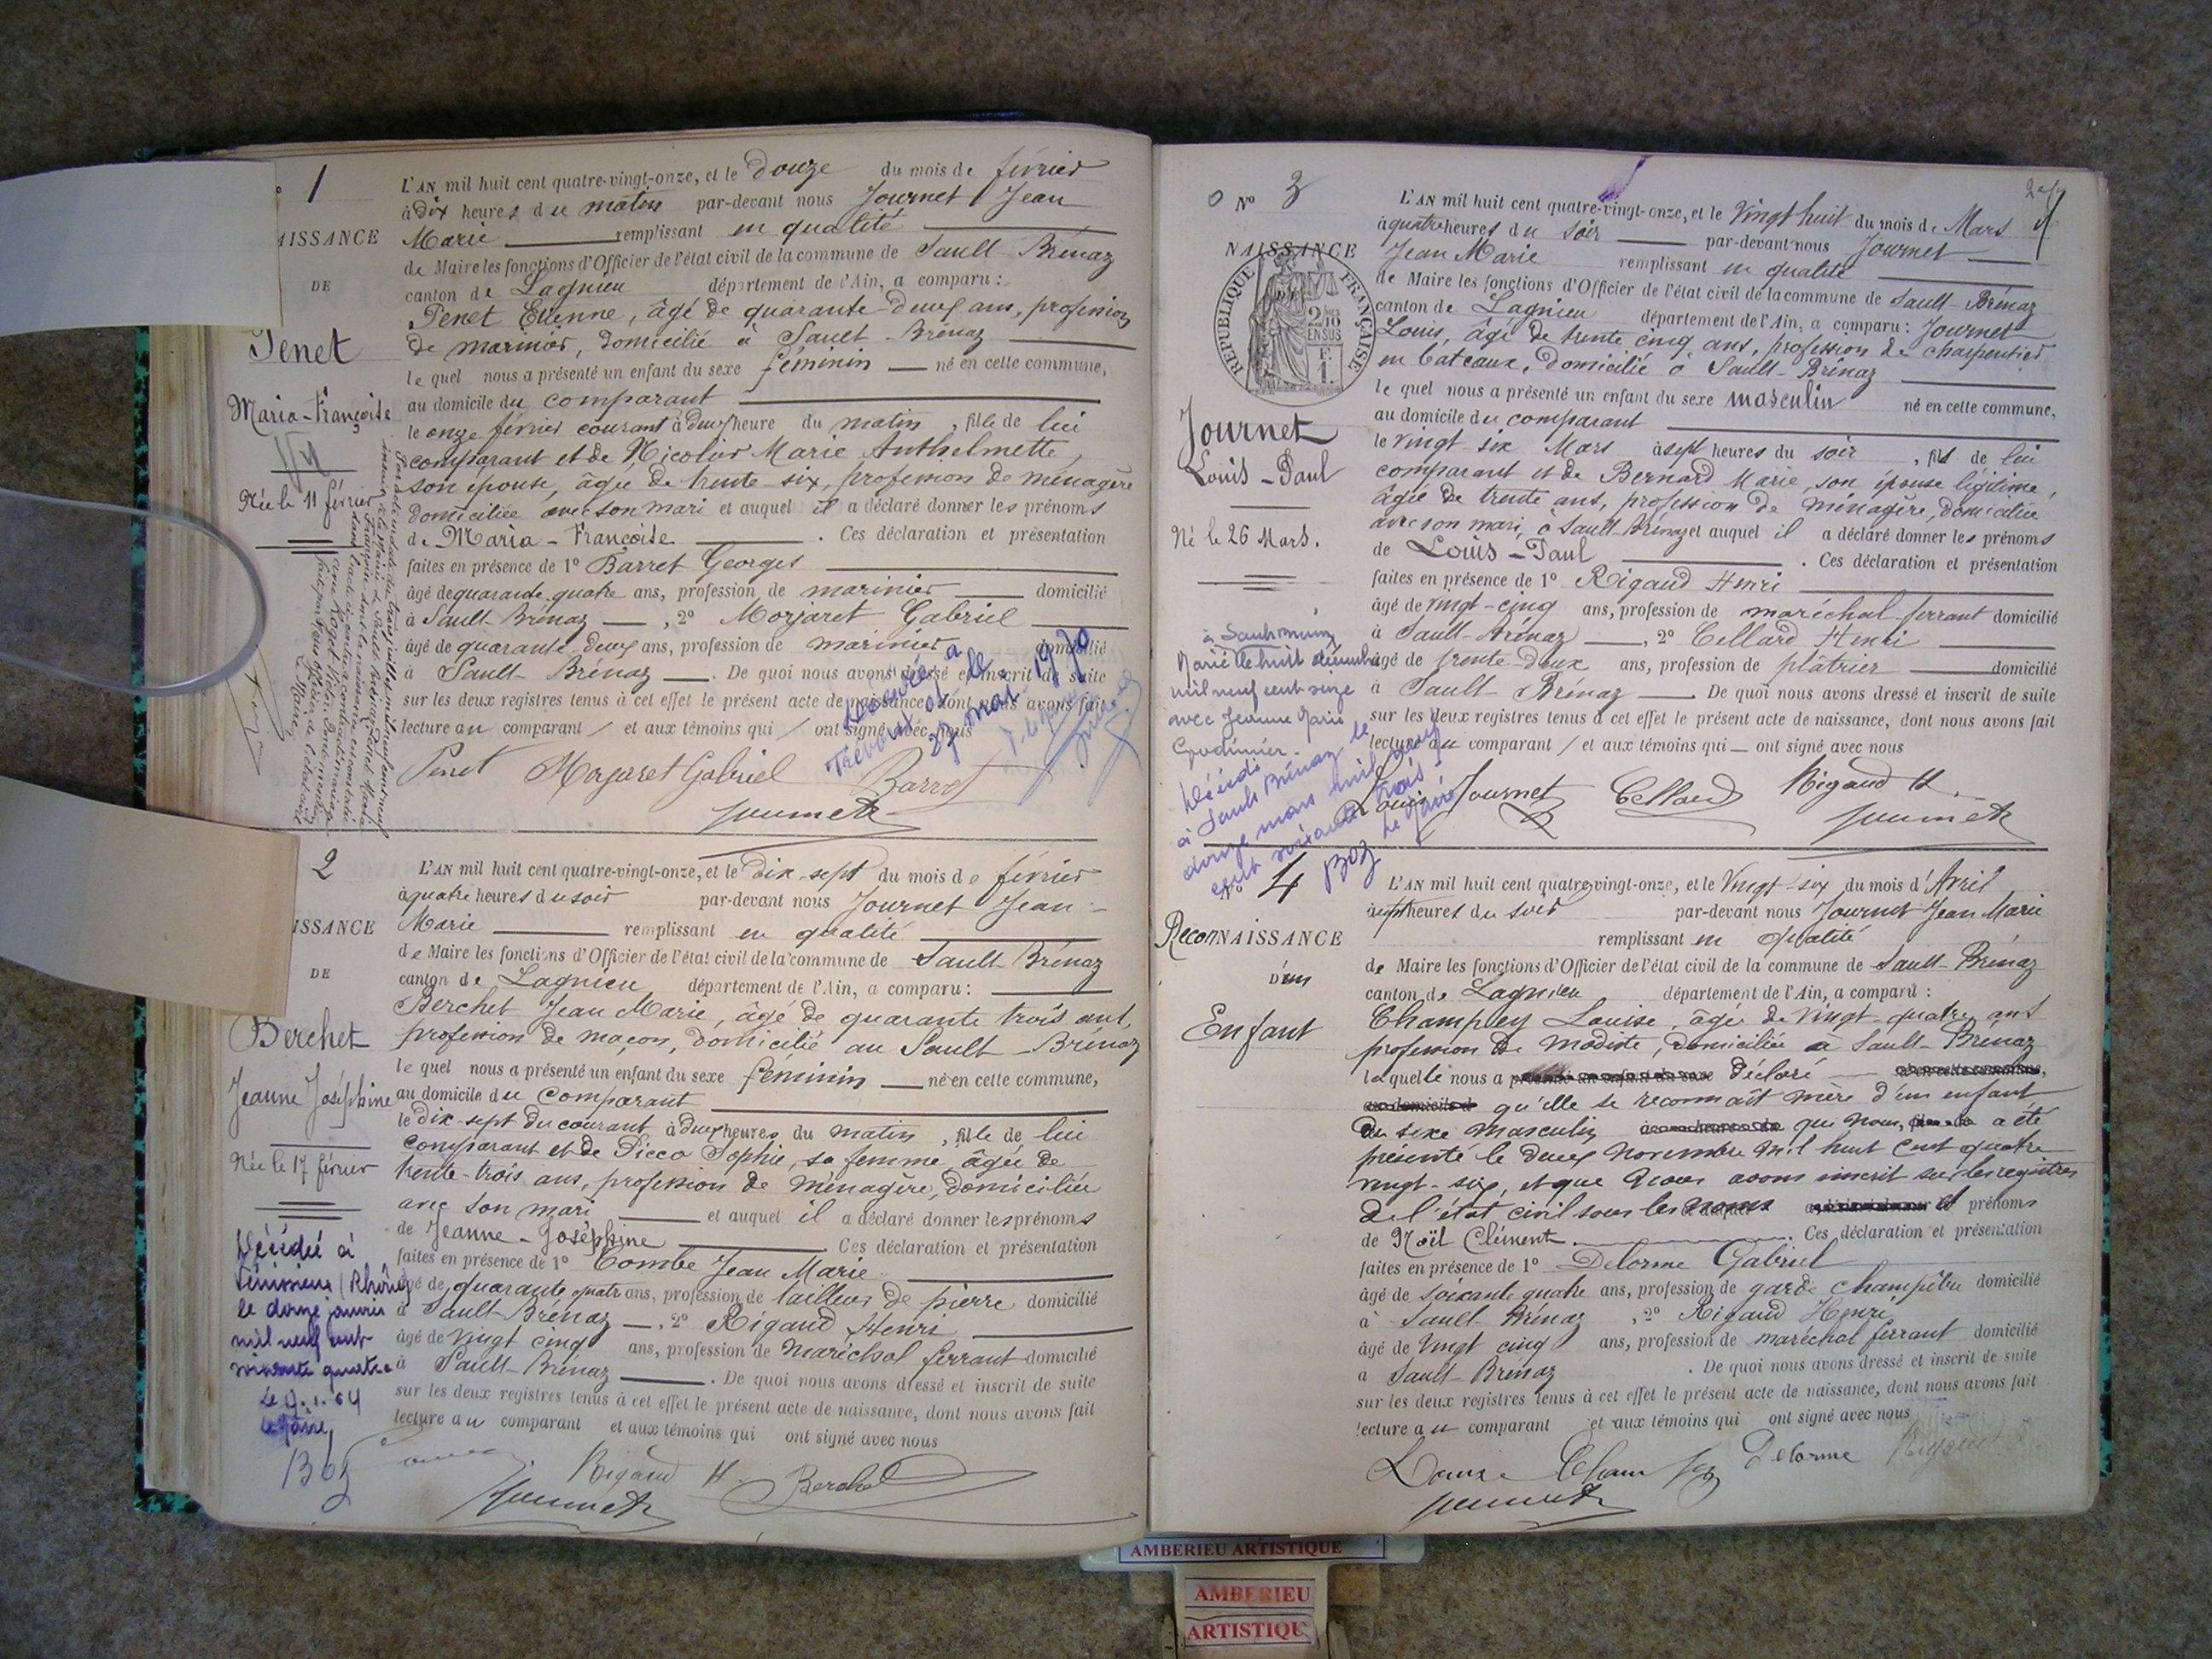 1
NAISSANCE
DE
Penet
Maria-Françoise
Née le 11 février
L'AN mil huit cent quatre-vingt-onze, et le Douze du mois de février
à Dix heures du matin par-devant nous Journet Jean
Marie remplissant en qualité
de Maire les fonctions d'Officier de l'état civil de la commune de Sault-Brénaz
canton de Lagnieu département de l'Ain, a comparu :
Penet Etienne, âgé de quarante-deux ans, profession
de marinier, domicilié à Sault-Brénaz
lequel nous a présenté un enfant du sexe féminin né en cette commune,
au domicile du comparant
le onze février courant à deux heure du matin, fille de lui
comparant et de Nicolier Marie Anthelmette,
son épouse, âgée de trente-six, profession de ménagère
domiciliée avec son mari et auquel il a déclaré donner les prénoms
de Maria-Françoise. Ces déclaration et présentation
faites en présence de 1º Barret Georges
âgé de quarante quatre ans, profession de marinier domicilié
à Sault-Brénaz, 2º Morjaret Gabriel
âgé de quarante deux ans, profession de marinier domicilié
à Sault-Brénaz. De quoi nous avons dressé et inscrit de suite
sur les deux registres tenus à cet effet le présent acte de naissance, dont nous avons fait
lecture au comparant / et aux témoins qui / ont signé avec nous
Décédée à
Trévoux
27 mai 1970
Penet Morjaret Gabriel Barret
Journet
2
NAISSANCE
DE
Berchet
Jeanne Joséphine
Née le 17 février
Décédée à
Vénissieux (Rhône)
le douze janvier
mil neuf cent
soixante quatre
Le Maire,
Boz
L'AN mil huit cent quatre-vingt-onze, et le Dix-sept du mois de février
à quatre heures du soir par-devant nous Journet Jean-
Marie remplissant en qualité
de Maire les fonctions d'Officier de l'état civil de la commune de Sault-Brénaz
canton de Lagnieu département de l'Ain, a comparu :
Berchet Jean Marie, âgé de quarante trois ans,
profession de maçon, domicilié au Sault-Brénaz
lequel nous a présenté un enfant du sexe féminin né en cette commune,
au domicile du comparant
le Dix-sept du courant à deux heures du matin, fille de lui
comparant et de Picco Sophie, sa femme âgée de
trente-trois ans, profession de ménagère, domiciliée
avec son mari et auquel il a déclaré donner les prénoms
de Jeanne-Joséphine. Ces déclaration et présentation
faites en présence de 1º Combe Jean Marie
âgé de quarante quatre ans, profession de tailleur de pierre domicilié
à Sault-Brénaz, 2º Rigaud Henri
âgé de vingt cinq ans, profession de Maréchal ferrant domicilié
à Sault-Brénaz. De quoi nous avons dressé et inscrit de suite
sur les deux registres tenus à cet effet le présent acte de naissance, dont nous avons fait
lecture au comparant et aux témoins qui ont signé avec nous
Rigaud H. Berchet
Journet
Nº 3
NAISSANCE
RÉPUBLIQUE FRANÇAISE
2/10 EN SUS
F. 1.
Journet
Louis-Paul
Né le 26 Mars.
Marié le huit décembre
mil neuf cent seize
avec Jeanne Marie
Décédé
à Sault Brénaz le
douze mars mil neuf
cent soixante trois
Le Maire
Boz
L'AN mil huit cent quatre-vingt-onze, et le Vingt huit du mois de Mars
à quatre heures du soir par-devant nous Journet
Jean Marie remplissant en qualité
de Maire les fonctions d'Officier de l'état civil de la commune de Sault-Brénaz
canton de Lagnieu département de l'Ain, a comparu : Journet
Louis, âgé de trente cinq ans, profession de charpentier
en bateaux, domicilié à Sault-Brénaz
lequel nous a présenté un enfant du sexe masculin né en cette commune,
au domicile du comparant
le vingt-six Mars à sept heures du soir, fils de lui
comparant et de Bernard Marie, son épouse légitime,
âgée de trente ans, profession de ménagère, domiciliée
avec son mari, à Sault-Brénaz et auquel il a déclaré donner les prénoms
de Louis-Paul. Ces déclaration et présentation
faites en présence de 1º Rigaud Henri
âgé de vingt-cinq ans, profession de maréchal ferrant domicilié
à Sault-Brénaz, 2º Cellard Henri
âgé de trente-deux ans, profession de plâtrier domicilié
à Sault-Brénaz. De quoi nous avons dressé et inscrit de suite
sur les deux registres tenus à cet effet le présent acte de naissance, dont nous avons fait
lecture au comparant / et aux témoins qui ont signé avec nous
Louis Journet Cellard Rigaud H.
Journet
Nº 4
ReconNAISSANCE
D'un
Enfant
L'AN mil huit cent quatre-vingt-onze, et le Vingt-six du mois d'Avril
à sept heures du soir par-devant nous Journet Jean Marie
remplissant en qualité
de Maire les fonctions d'Officier de l'état civil de la commune de Sault-Brénaz
canton de Lagnieu département de l'Ain, a comparu :
Champley Louise, âgée de vingt-quatre ans
profession de modiste, domiciliée à Sault-Brénaz
laquelle nous a déclaré
qu'elle se reconnaît mère d'un enfant
du sexe masculin qui nous a été
présenté le deux Novembre mil huit cent quatre
vingt-six, et que nous avons inscrit sur les registres
de l'état civil sous les noms et prénoms
de Noël Clément. Ces déclaration et présentation
faites en présence de 1º Delorme Gabriel
âgé de soixante quatre ans, profession de garde champêtre domicilié
à Sault-Brénaz, 2º Rigaud Henri
âgé de vingt cinq ans, profession de maréchal ferrant domicilié
à Sault-Brénaz. De quoi nous avons dressé et inscrit de suite
sur les deux registres tenus à cet effet le présent acte de naissance, dont nous avons fait
lecture au comparant et aux témoins qui ont signé avec nous
Louise Champley Delorme Rigaud
Journet
AMBERIEU ARTISTIQUE
AMBERIEU
ARTISTIQUE